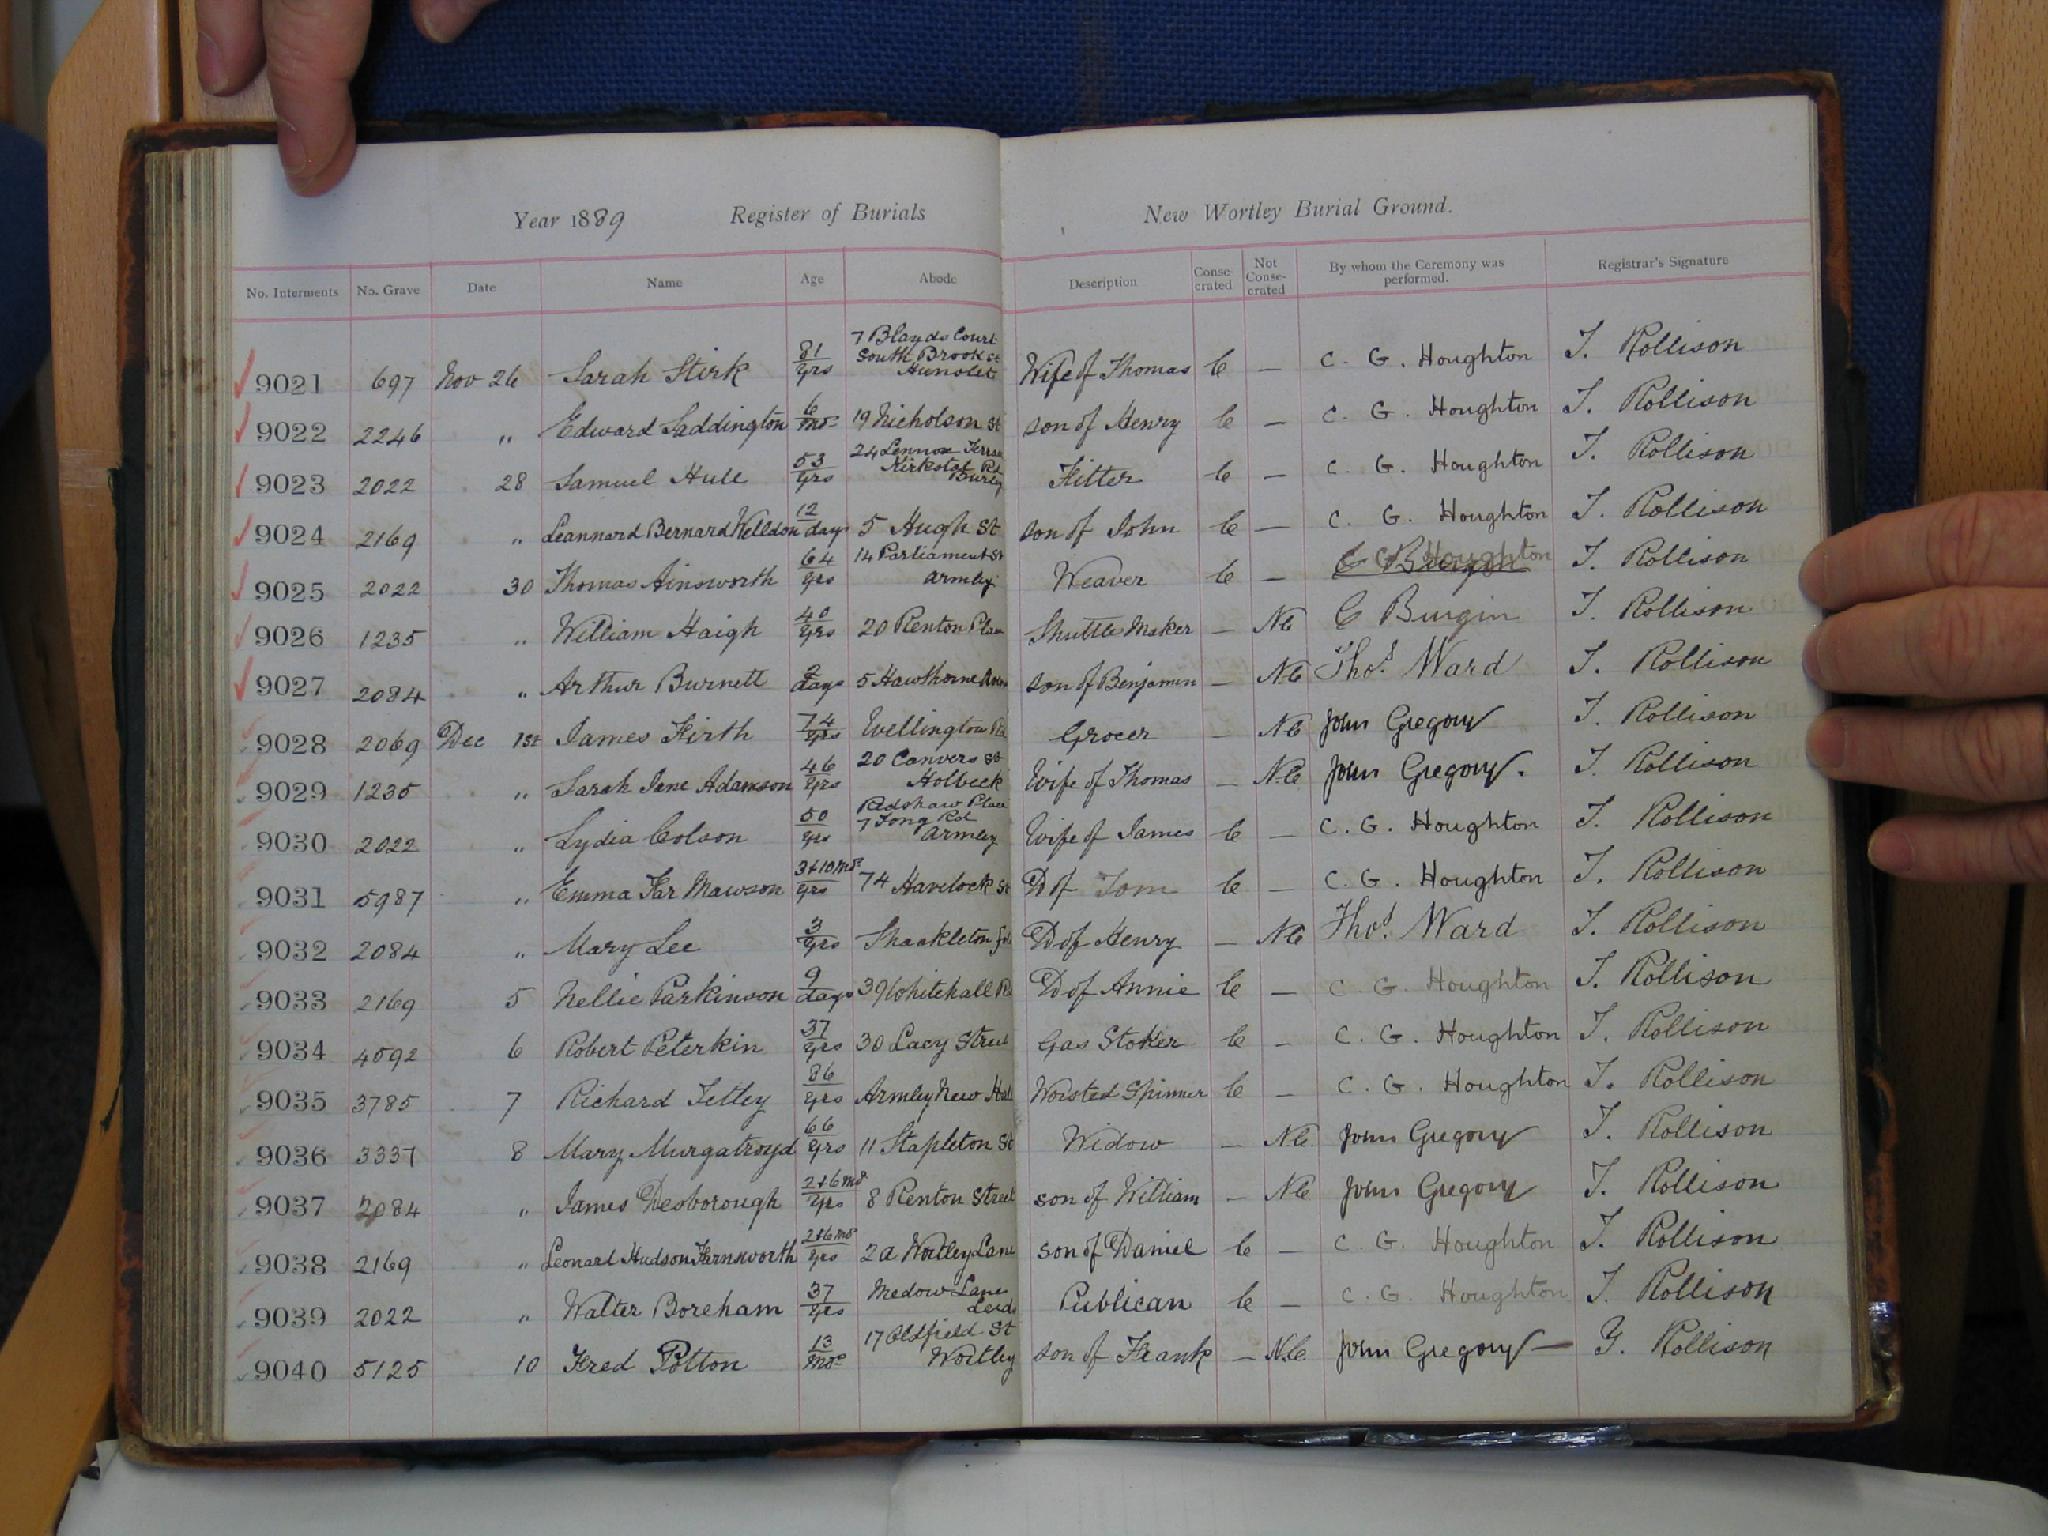 Year 1889 Register of Burials New Wortley Burial Ground.
No. Interments No. Grave Date Name Age Abode Description Conse-crated Not Conse-crated By whom the Ceremony was performed. Registrar's Signature
9021 697 Nov 26 Sarah Stirk 81 yrs 7 Blayds Court South Brook St Hunslet Wife of Thomas C — C. G. Houghton T. Rollison
9022 2246 " Edward Saddington 6 mos 19 Nicholson St son of Henry C — C. G. Houghton T. Rollison
9023 2022 28 Samuel Hule 53 yrs 24 Lennox Terrace Kirkstal Rd Burley Fitter C — C. G. Houghton T. Rollison
9024 2169 " Leannard Bernard Welldon 12 days 5 Hugh St son of John C — C. G. Houghton T. Rollison
9025 2022 30 Thomas Ainsworth 64 yrs 14 Parliament St Armley Weaver C — C G Houghton T. Rollison
9026 1235 " William Haigh 40 yrs 20 Renton Place Shuttle Maker — NC C Burgin T. Rollison
9027 2084 " Arthur Burnett days 5 Hawthorne son of Benjamin — NC Thos. Ward T. Rollison
9028 2069 Dec 1st James Firth 74 yrs Wellington Grocer — NC John Gregory T. Rollison
9029 1235 " Sarah Jane Adamson 46 yrs 20 Canvers St Holbeck Wife of Thomas — N.C John Gregory. T. Rollison
9030 2022 " Lydia Colson 50 yrs Redshaw Place 7 Tong Rd Armley Wife of James C — C. G. Houghton T. Rollison
9031 5987 " Emma Far Mawson 3+10 mos yrs 74 Havelock St D of Tom C — C. G. Houghton T. Rollison
9032 2084 " Mary Lee 3 yrs Shackleton D of Henry — NC Thos. Ward T. Rollison
9033 2169 5 Nellie Parkinson 9 days 39 Whitehall Rd D of Annie C — C. G. Houghton T. Rollison
9034 4592 6 Robert Peterkin 37 yrs 30 Lacy Street Gas Stoker C — C. G. Houghton T. Rollison
9035 3785 7 Richard Tetley 86 yrs Armley New Hall Worsted Spinner C C. G. Houghton T. Rollison
9036 3337 8 Mary Murgatroyd 66 yrs 11 Stapleton St Widow — NC John Gregory T. Rollison
9037 2084 " James Desborough 2+6 mos yrs 8 Renton Street son of William — NC John Gregory T. Rollison
9038 2169 " Leonard Hudson Farnsworth 2+6 mos yrs 2a Wortley Lane son of Daniel C — C. G. Houghton T. Rollison
9039 2022 " Walter Boreham 37 yrs Medow Lane Leeds Publican C — C. G. Houghton T. Rollison
9040 5125 10 Fred Potton 13 mos 17 Oldfield St Wortley son of Frank — N.C. John Gregory — T. Rollison